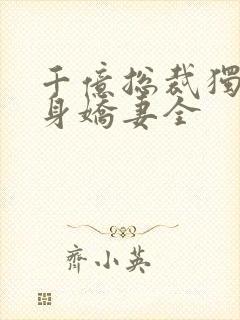 千億总裁獨
身嬌妻全
齊小英